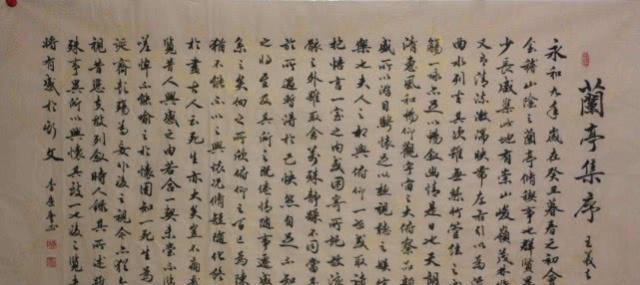 蘭亭集序 王羲之
永和九年歲在癸丑暮春之初會
會稽山陰之蘭亭脩禊事也群賢畢
少長咸集此地有崇山峻嶺茂林脩
又有清流激湍映帶左右引以為流
曲水列坐其次雖無絲竹管弦之
觴一詠亦足以暢敘幽情是日也天朗
清惠風和暢仰觀宇宙之大俯察品類
盛所以遊目騁懷足以極視聽之娛
樂也夫人之相與俯仰一世或取諸
抱悟言一室之內或因寄所託放浪
骸之外雖取舍萬殊靜躁不同當其
於所遇暫得於己快然自足不知
之將至及其所之既倦情隨事遷
係之矣向之所欣俯仰之間已為陳
猶不能不以之興懷況脩短隨化終
於盡古人云死生亦大矣豈不痛哉
覽昔人興感之由若合一契未嘗不臨
嗟悼不能喻之於懷固知一死生為
誕齊彭殤為妄作後之視今亦猶今
視昔悲夫故列敘時人錄其所述雖
殊事異所以興懷其致一也後之覽者
將有感於斯文